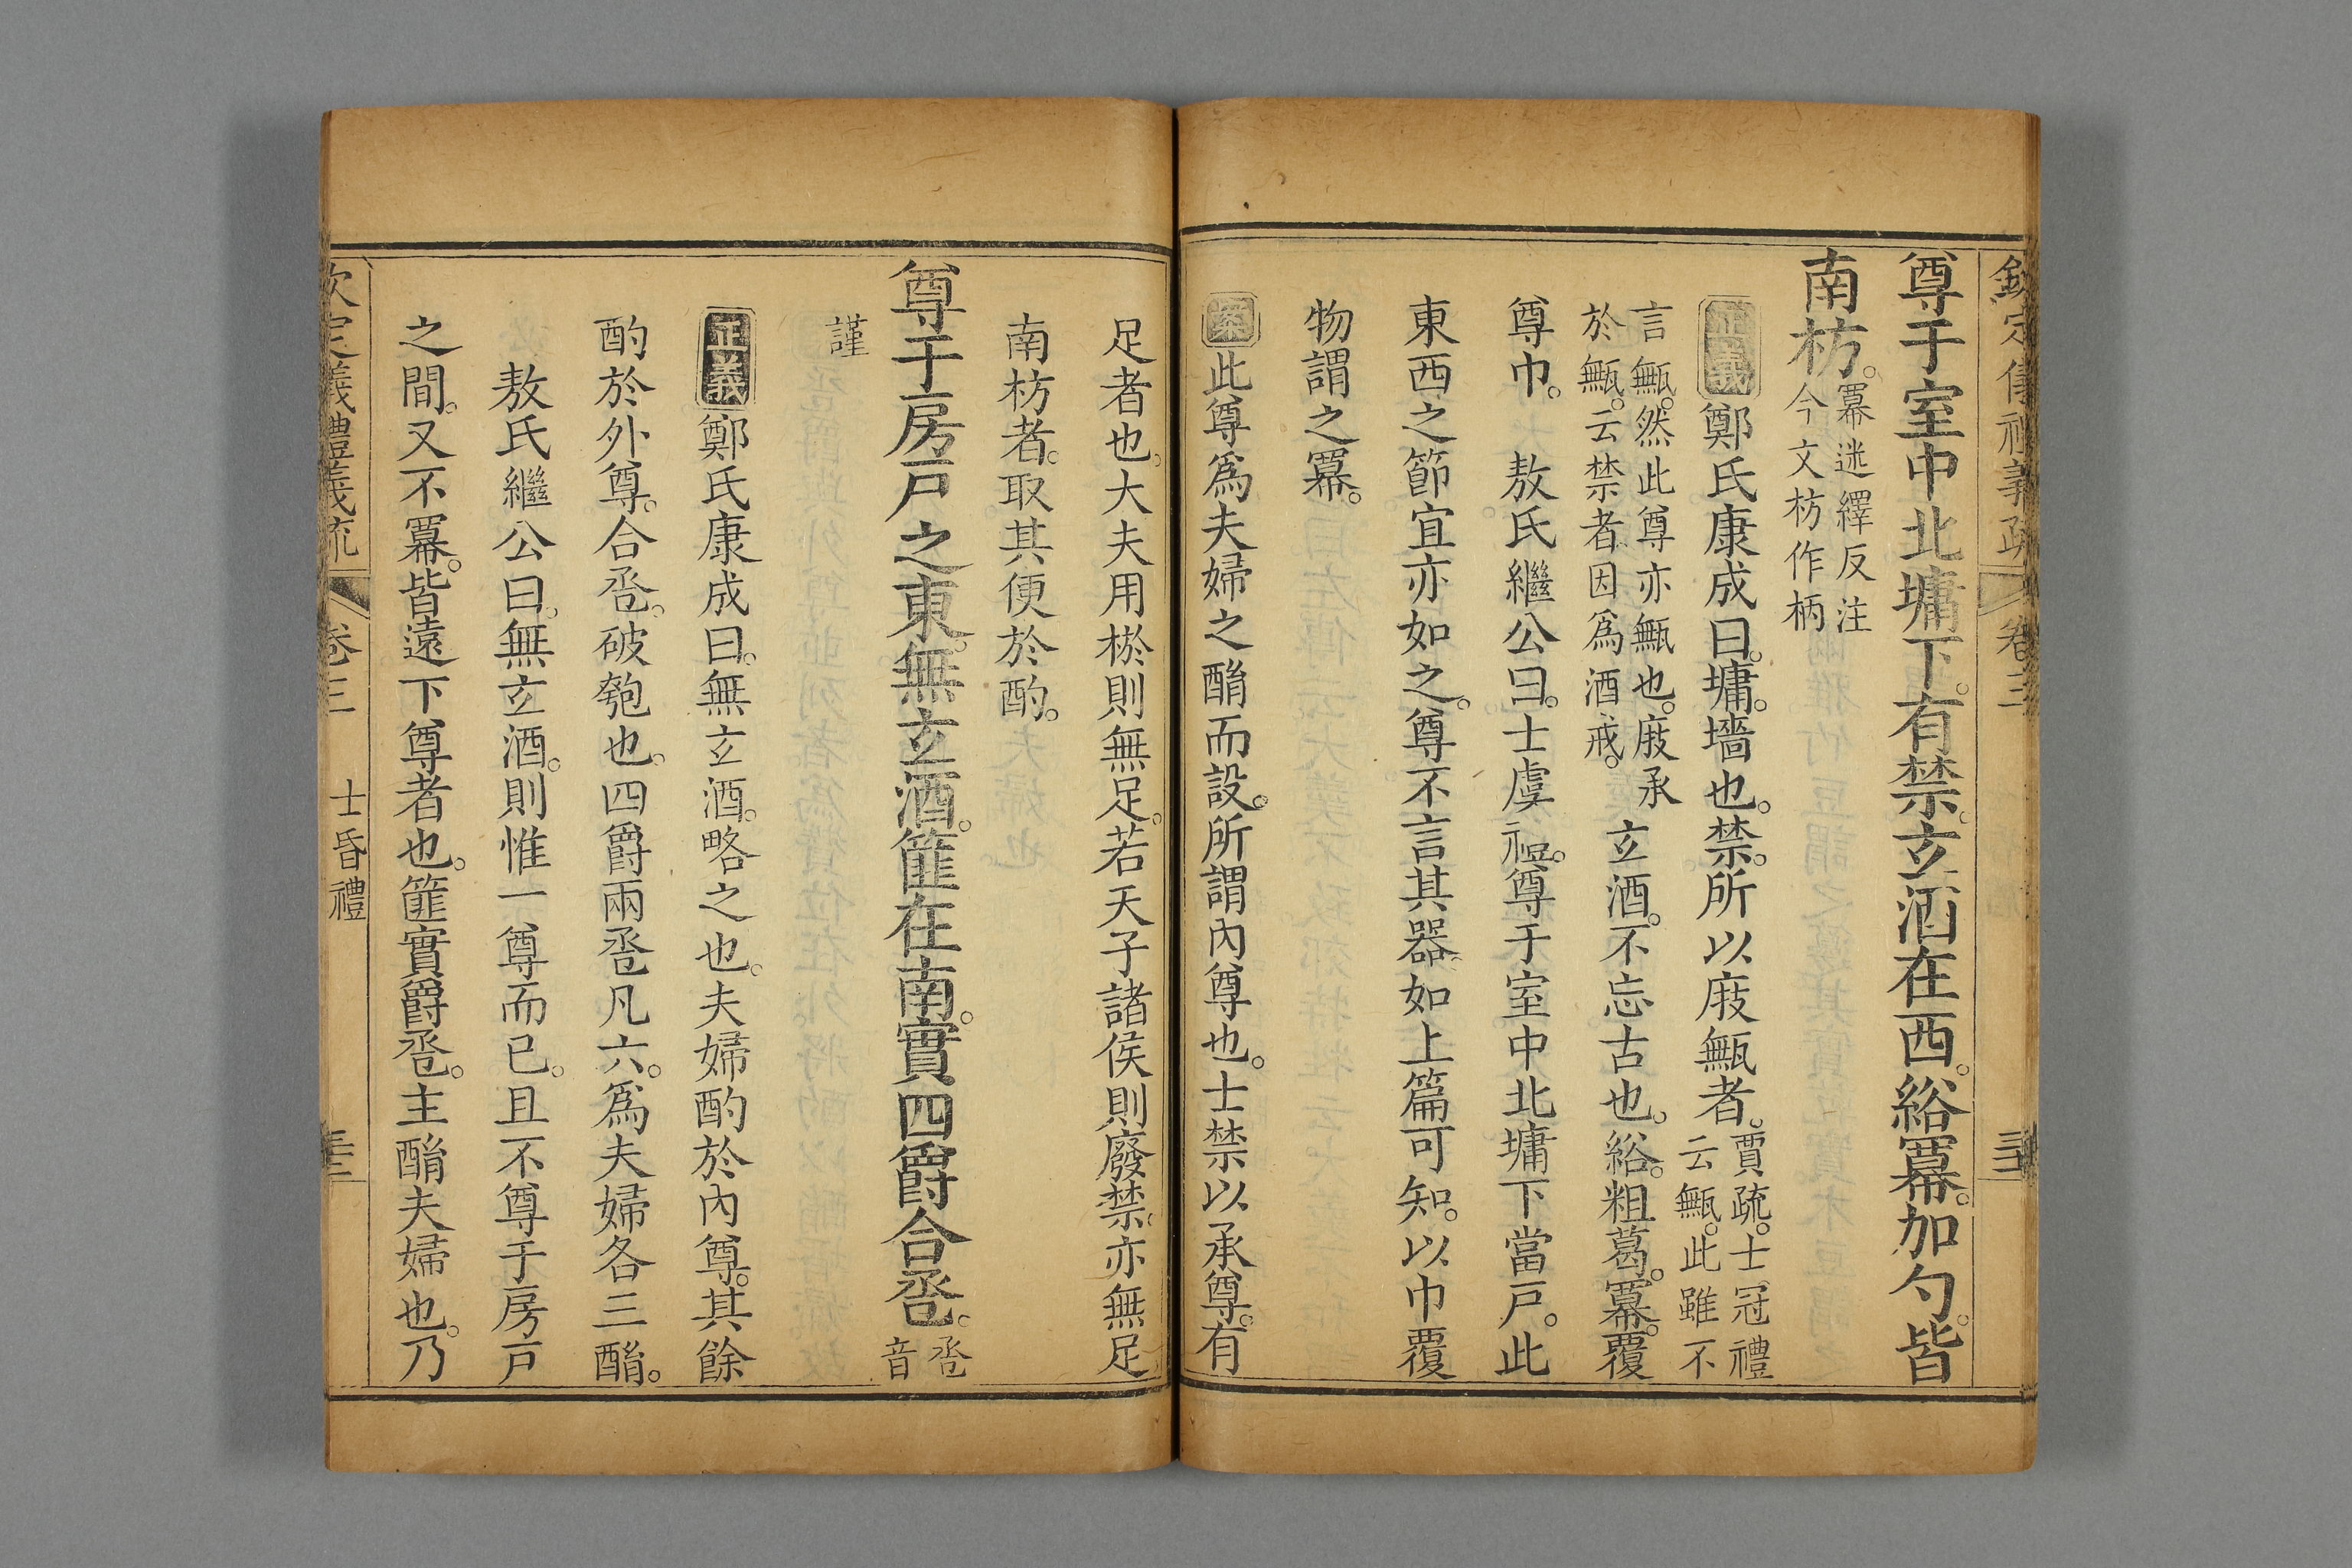 欽定儀禮義疏 卷三
尊于室中北墉下。有禁。玄酒在西。綌冪。加勺。皆
南枋。冪迷繹反注
今文枋作柄
正義鄭氏康成曰。墉。墻也。禁。所以庪甒者。賈疏。士冠禮
云甒。此雖不
言甒。然此尊亦甒也。庪承
於甒。云禁者因爲酒戒。
玄酒。不忘古也。綌。粗葛。冪。覆
尊巾。 敖氏繼公曰。士虞禮。尊于室中北墉下當戸。此
東西之節宜亦如之。尊不言其器。如上篇可知。以巾覆
物謂之冪。
案此尊爲夫婦之酳而設。所謂內尊也。士禁以承尊。有
足者也。大夫用棜則無足。若天子諸侯則廢禁。亦無足
南枋者。取其便於酌。
尊于房戸之東。無玄酒。篚在南。實四爵合卺。卺
音
謹
正義鄭氏康成曰。無玄酒。略之也。夫婦酌於內尊。其餘
酌於外尊。合卺。破匏也。四爵兩卺凡六。爲夫婦各三酳。
敖氏繼公曰。無玄酒。則惟一尊而已。且不尊于房戸
之間。又不冪。皆遠下尊者也。篚實爵卺。主酳夫婦也。乃
欽定儀禮義疏 卷三 士昏禮